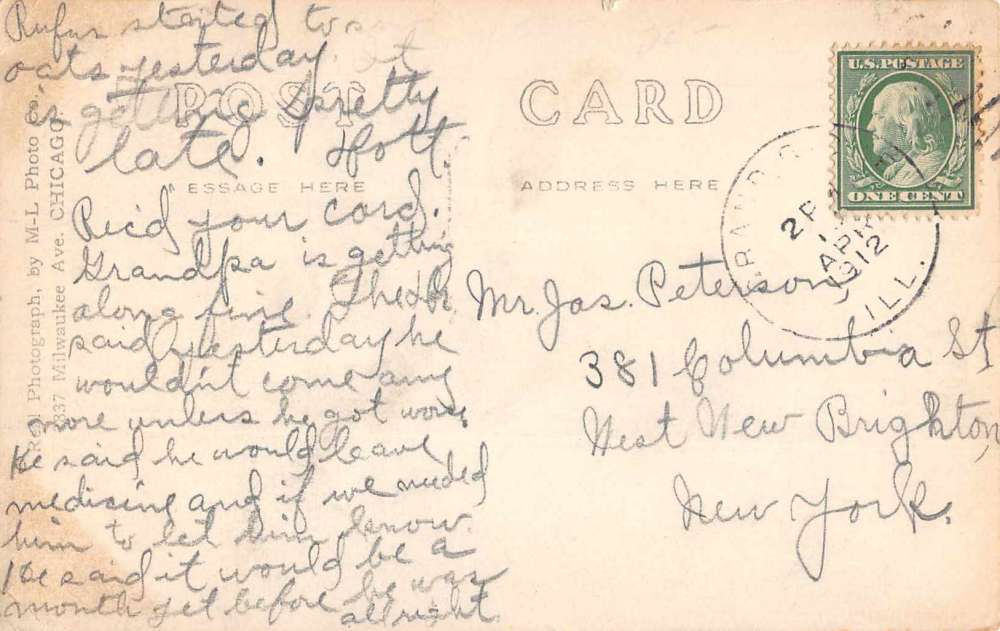 Rufus started to sow
oats yesterday it
is getting pretty
late. Hott.
Rec'd your card.
Grandpa is getting
along fine. The Dr.
said yesterday he
wouldn't come any
more unless he got worse
He said he would leave
medicine and if we needed
him to let him know.
He said it would be a
month yet before he was
all right.
POST CARD
ESSAGE HERE
ADDRESS HERE
Real Photograph, by M-L Photo
337 Milwaukee Ave. CHICAGO
U.S. POSTAGE
ONE CENT
2 P
APR
1912
ILL.
Mr. Jas. Peterson,
381 Columbia St
West New Brighton,
New York.